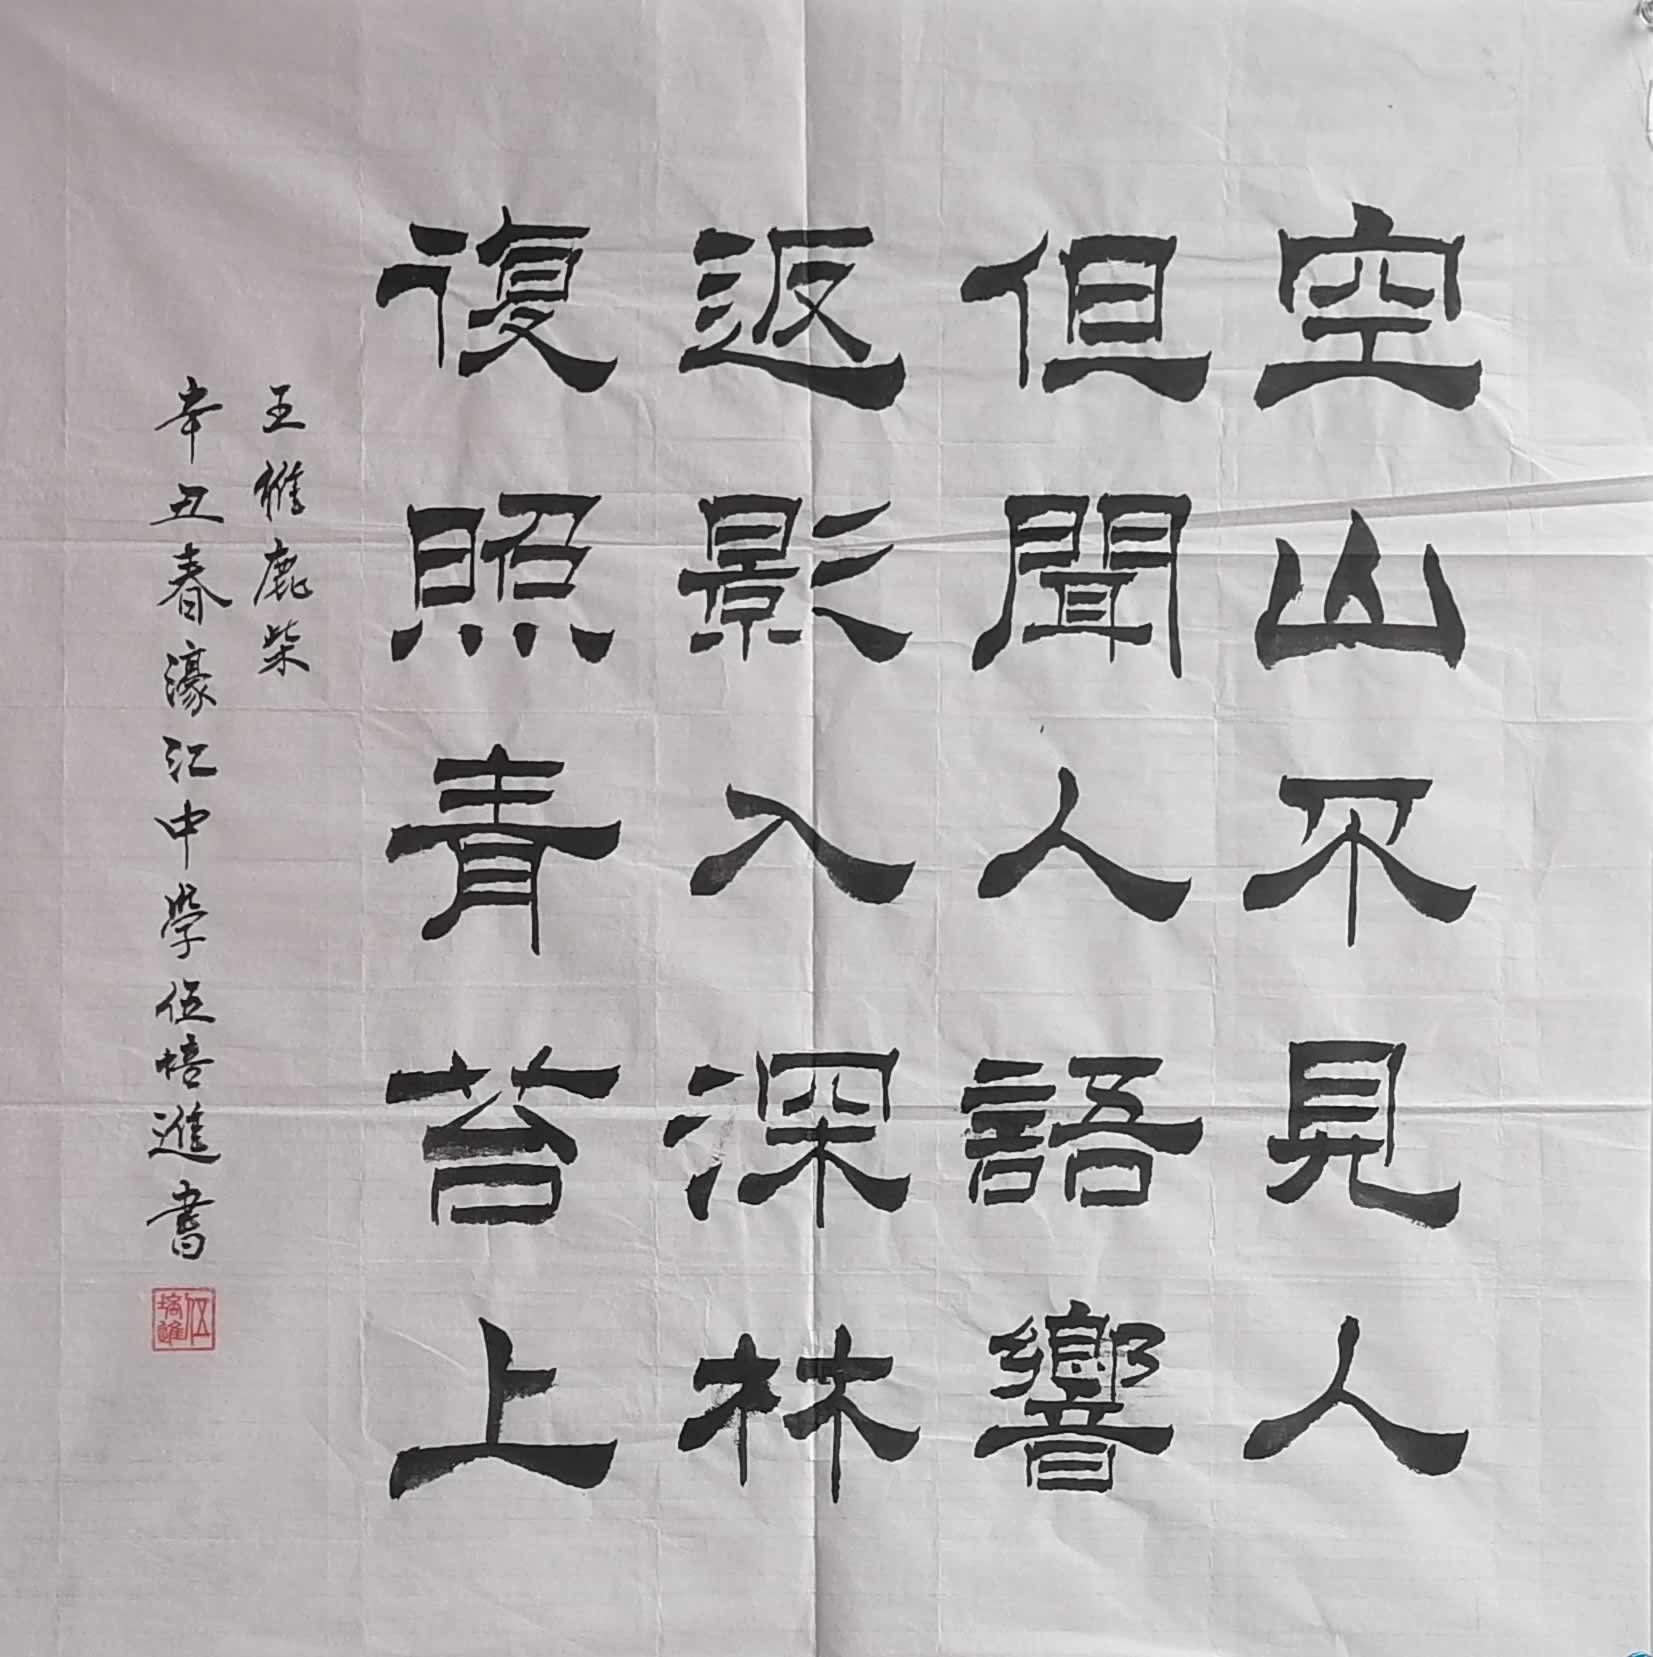 空山不見人
但聞人語響
返影入深林
復照青苔上
王維鹿柴
辛丑春濠江中學伍培進書
伍培進